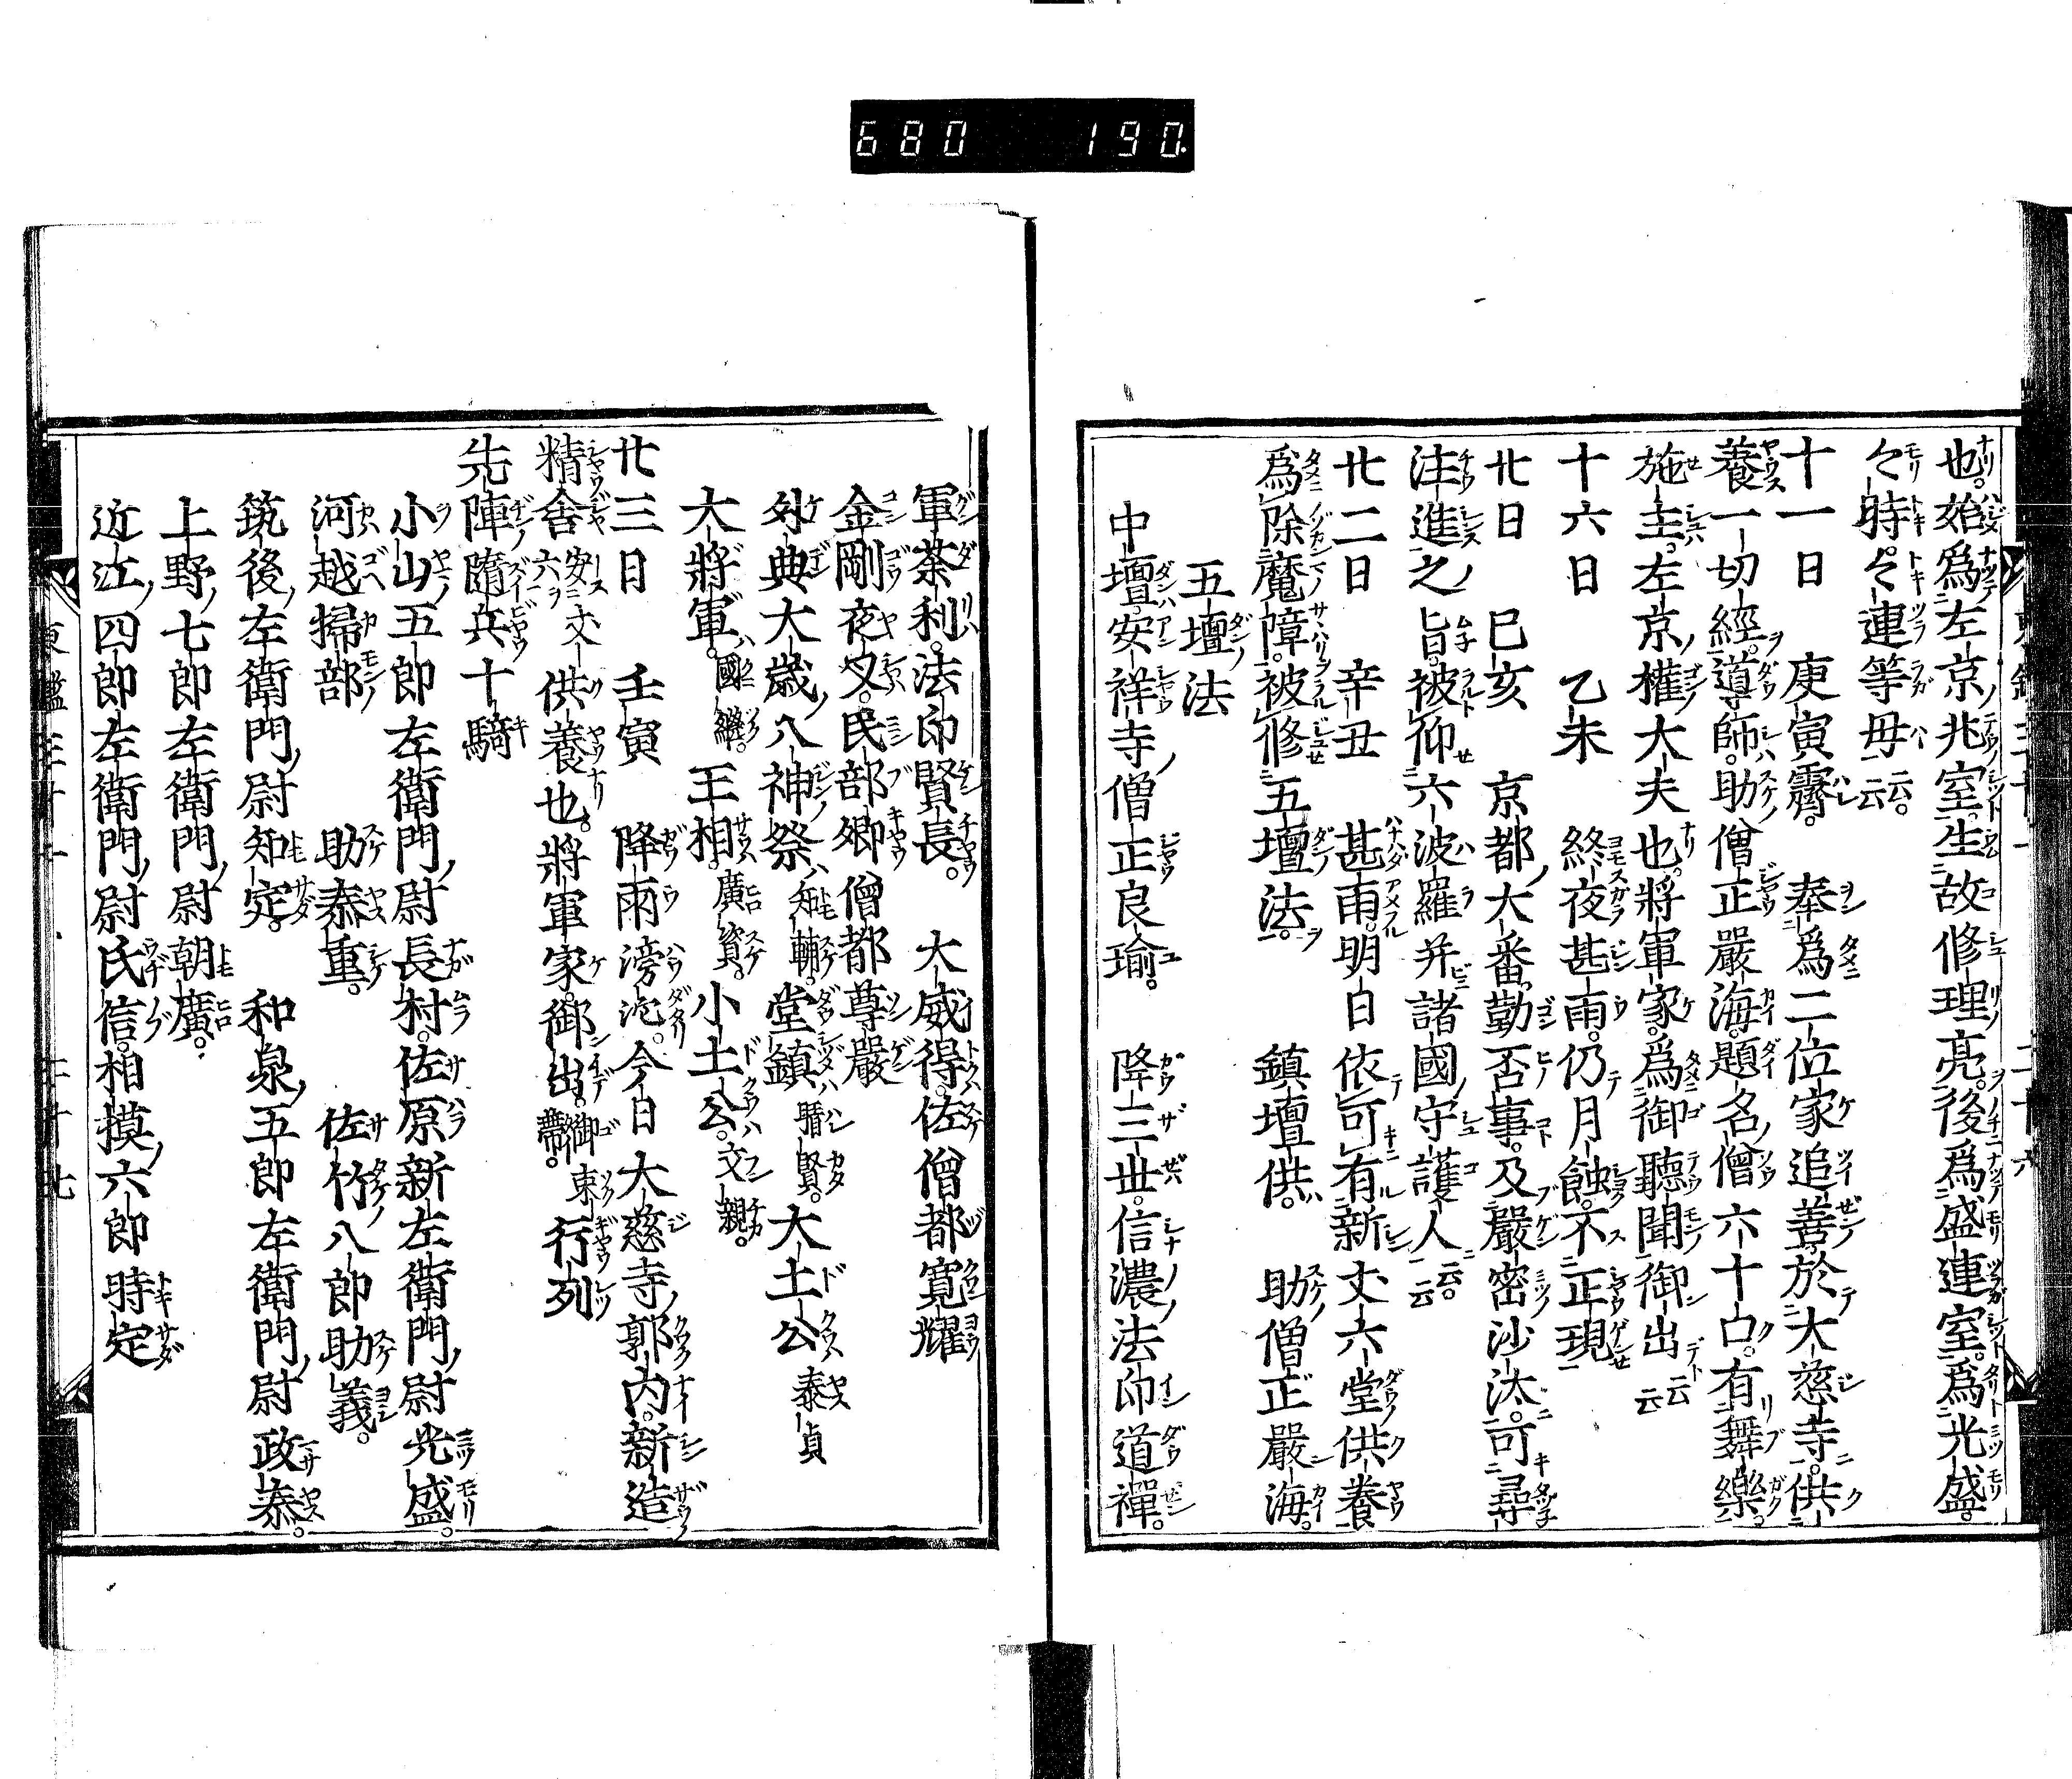 680 190
也。始爲左京兆室。生故修理亮。後爲盛連室。爲光盛。
々時。々連等母云云。
十一日　庚寅霽。奉爲二位家追善。於大慈寺。供
養一切經。導師。助僧正嚴海。題名僧六十口。有舞樂。
施主。左京權大夫也。將軍家。爲御聽聞御出云云
十六日　乙未　終夜甚雨。仍月蝕。不正現
廿日　巳亥　京都大番勤否事。及嚴密沙汰。可尋
注進之旨。被仰六波羅并諸國守護人云云。
廿二日　辛丑　甚雨。明日依可有新丈六堂供養
爲除魔障。被修五壇法。　鎮壇供。助僧正嚴海。
五壇法
中壇。安祥寺僧正良瑜。　降三世。信濃法印道禪。
軍荼利。法印賢長。　大威得。佐僧都寛耀
金剛夜叉。民部卿僧都尊嚴
外典大歳八神祭　知輔。堂鎮　晴賢。大土公　泰貞
大將軍。國繼。王相。廣資。小土公。文親。
廿三日　壬寅　降雨滂沱。今日大慈寺郭内。新造
精舍安丈六　供養也。將軍家。御出。御束帶。行列
先陣隨兵十騎
小山五郎左衛門尉長村。佐原新左衛門尉光盛。
河越掃部助泰重。　佐竹八郎助義。
筑後左衛門尉知定。　和泉五郎左衛門尉政泰。
上野七郎左衛門尉朝廣。
近江四郎左衛門尉氏信。相摸六郎時定